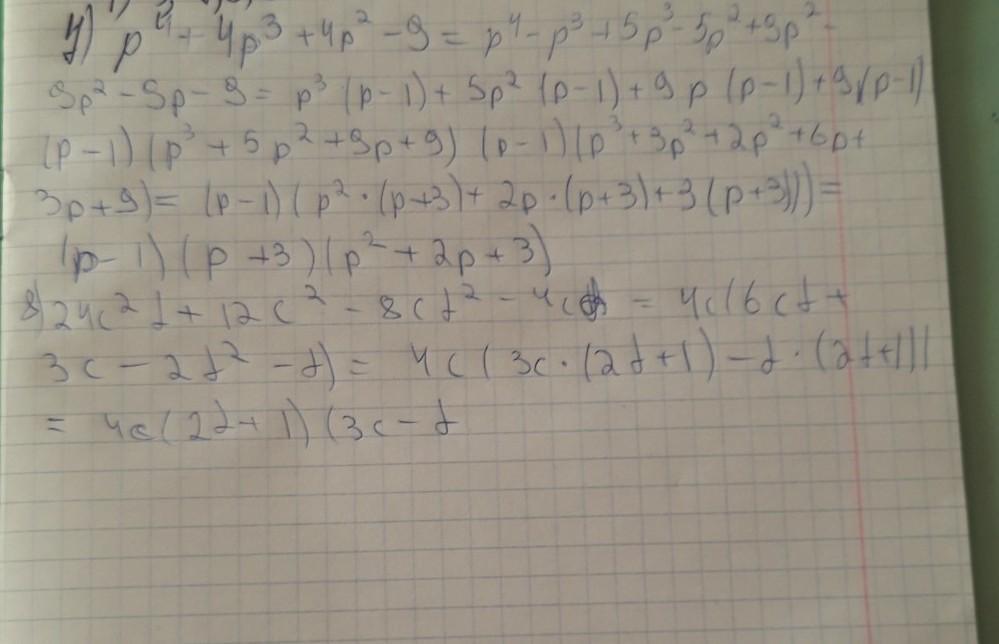 y) p⁴ + 4p³ + 4p² - 9 = p⁴ - p³ + 5p³ - 5p² + 9p² -
9p² - 9p - 9 = p³ (p - 1) + 5p² (p - 1) + 9p (p - 1) + 9(p - 1)
(p - 1) (p³ + 5p² + 9p + 9) (p - 1) (p³ + 3p² + 2p² + 6p +
3p + 9) = (p - 1) (p² · (p + 3) + 2p · (p + 3) + 3 (p + 3))) =
(p - 1) (p + 3) (p² + 2p + 3)
8) 24c²d + 12c² - 8cd² - 4cd = 4c (6cd +
3c - 2d² - d) = 4c (3c · (2d + 1) - d · (2d + 1))
= 4c (2d + 1) (3c - d